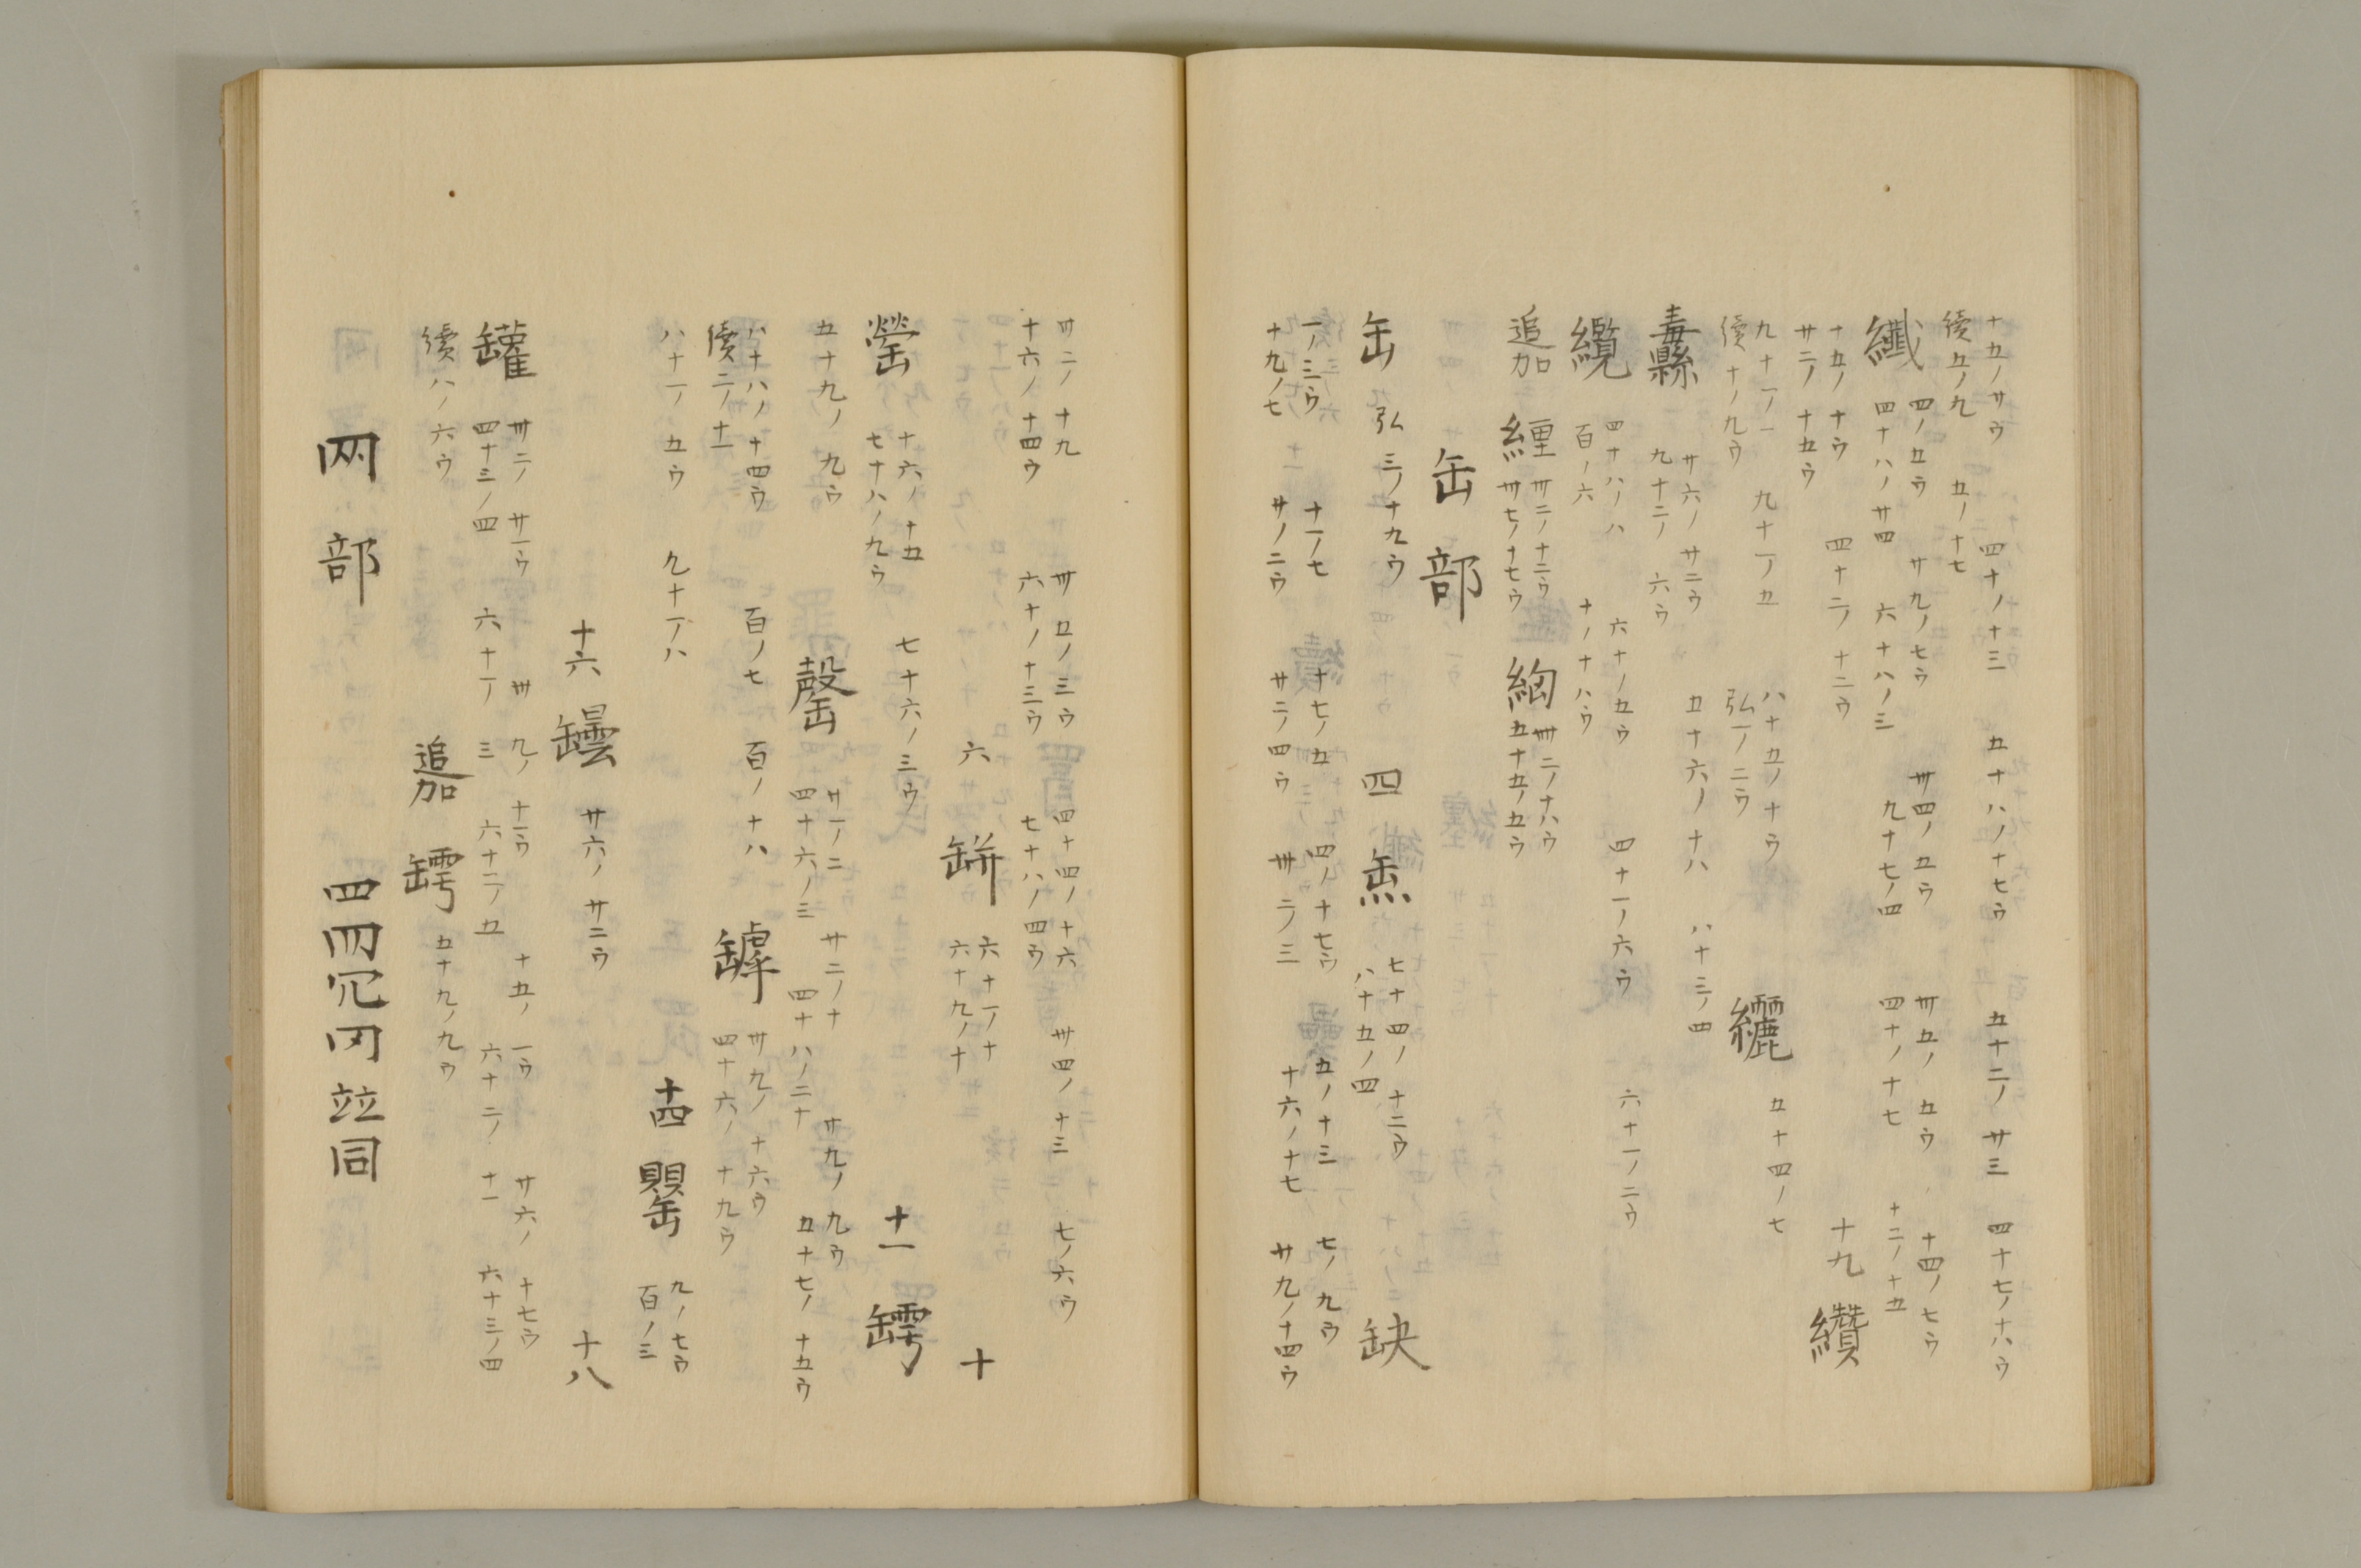 十五ノ廿ウ 四十ノ十三 五十八ノ十七ウ 五十二ノ廿三 四十七ノ十六ウ
續五ノ九 五ノ十七
纖 四ノ五ウ 廿九ノ七ウ 卅四ノ五ウ 卅五ノ五ウ 十四ノ七ウ
四十八ノ廿四 六十八ノ三 九十七ノ四 四十ノ十七 十二ノ十五
十五ノ十ウ 四十二ノ十二ウ 十九 纘
廿二ノ十五ウ
九十一ノ一 九十一ノ五 八十五ノ十ウ 纚 五十四ノ七
續十ノ九ウ 弘一ノ二ウ
纛 廿六ノ廿二ウ 五十六ノ十八 八十三ノ四
九十二ノ六ウ
纜 四十八ノ八 六十ノ五ウ 四十一ノ六ウ 六十一ノ二ウ
百ノ六 十ノ十八ウ
追加 纒 卅二ノ十二ウ 卌七ノ十七ウ 綯 卌二ノ十八ウ 五十五ノ五ウ
缶部
缶 弘三ノ十九ウ 四 缹 七十四ノ十二ウ 八十五ノ四 缺
一ノ三ウ 十一ノ七 十七ノ五 四ノ十七ウ 五ノ十三 七ノ九ウ
十九ノ七 廿ノ二ウ 廿二ノ四ウ 卌二ノ三 十六ノ十七 廿九ノ十四ウ
卅二ノ十九 卌五ノ三ウ 四十四ノ十六 卅四ノ十三 七ノ六ウ
十六ノ十四ウ 六十ノ十三ウ 七十八ノ四ウ
六 缾 六十一ノ十 六十九ノ十 十
罃 十六ノ十五 七十六ノ三ウ 十一 罅
七十八ノ九ウ
五十九ノ九ウ 罄 廿一ノ二 廿二ノ十 廿九ノ九ウ
四十六ノ三 四十八ノ二十 五十七ノ十五ウ
八十八ノ十四ウ 百ノ七 百ノ十八 罅 卅九ノ十六ウ
續二ノ十一 四十六ノ十九ウ
八十一ノ五ウ 九十一ノ八 十四 罌 九ノ七ウ 百ノ三
十六 罎 廿六ノ廿二ウ 十八
罐 卅二ノ廿一ウ 卌九ノ十一ウ 十五ノ一ウ 廿六ノ十七ウ
四十三ノ四 六十一ノ三 六十二ノ五 六十二ノ十一 六十三ノ四
續八ノ六ウ 追加 罅 五十九ノ九ウ
网部 四罒冗冈竝同